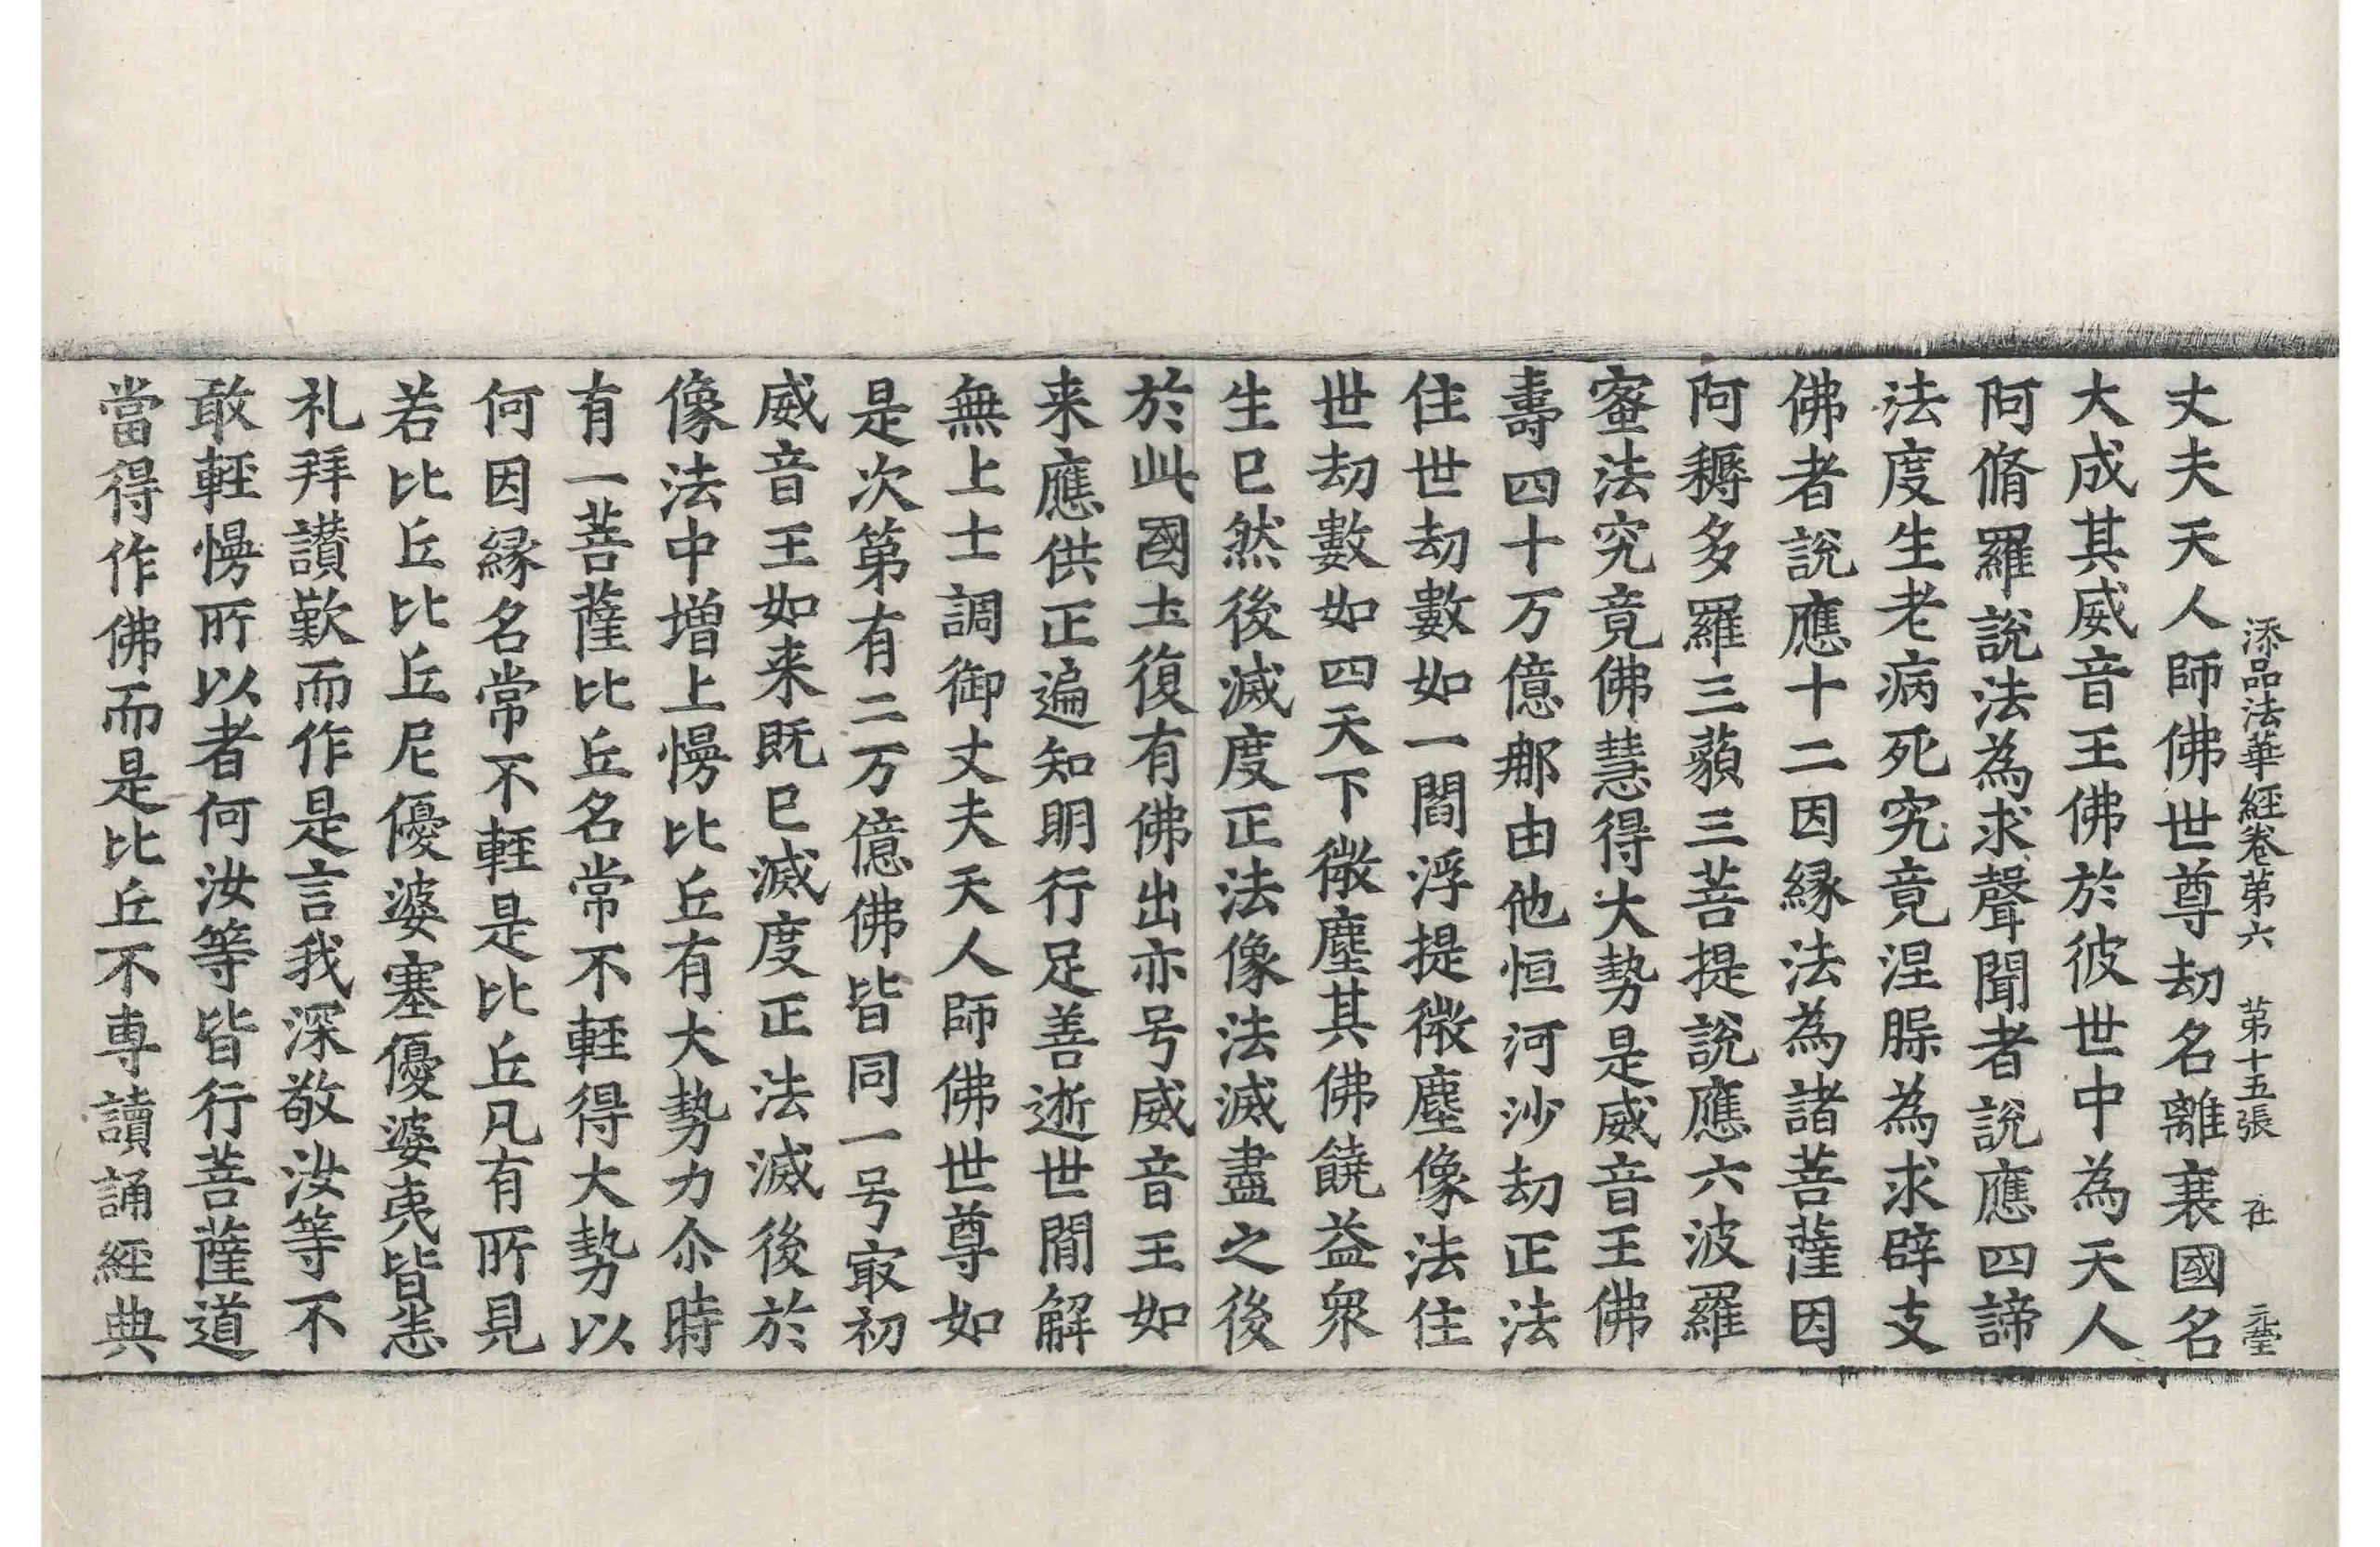 添品法華經卷第六 第十五張 社
丈夫天人師佛世尊劫名離衰國名
大成其威音王佛於彼世中為天人
阿脩羅說法為求聲聞者說應四諦
法度生老病死究竟涅槃為求辟支
佛者說應十二因縁法為諸菩薩因
阿耨多羅三藐三菩提說應六波羅
蜜法究竟佛慧得大勢是威音王佛
壽四十万億那由他恒河沙劫正法
住世劫數如一閻浮提微塵像法住
世劫數如四天下微塵其佛饒益衆
生已然後滅度正法像法滅盡之後
於此國土復有佛出亦号威音王如
来應供正遍知明行足善逝世間解
無上士調御丈夫天人師佛世尊如
是次第有二万億佛皆同一号㝡初
威音王如来既已滅度正法滅後於
像法中增上慢比丘有大勢力尒時
有一菩薩比丘名常不輕得大勢以
何因縁名常不輕是比丘凡有所見
若比丘比丘尼優婆塞優婆夷皆悉
礼拜讃歎而作是言我深敬汝等不
敢輕慢所以者何汝等皆行菩薩道
當得作佛而是比丘不専讀誦經典